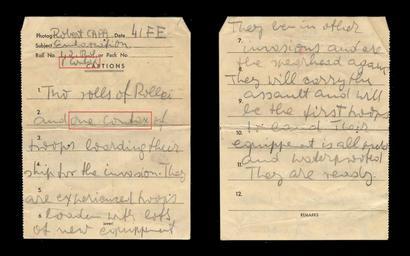 Photog Robert CAPA Date 4 JFE
Subject
Roll No. or Pack No.
CAPTIONS
1 Two rolls of Rollei
2 and one contax of
3 troops boarding their
4 ship for the invasion. They
5 are experienced troops
6 loaded with lots
(over)
of new equippment
7. They ben in other
invasions and are
8. the spearhead again
They will carry the
9. assault and will
be the first troops
10. to land. Their
equippent is all
11. and waterproofed
They are ready.
12.
REMARKS